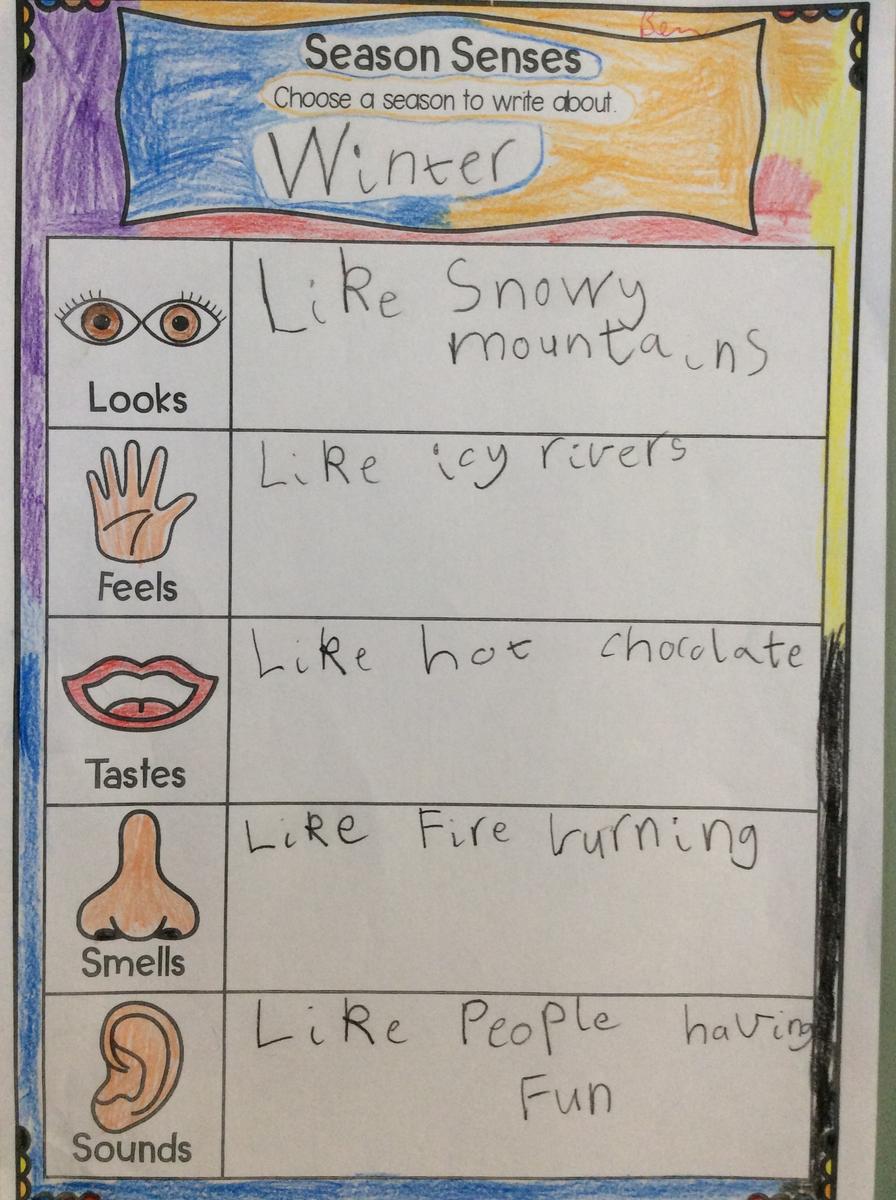 Ben
Season Senses
Choose a season to write about.
Winter
Looks
Like Snowy
mountains
Feels
Like icy rivers
Tastes
Like hot chocolate
Smells
Like Fire burning
Sounds
Like People having
Fun